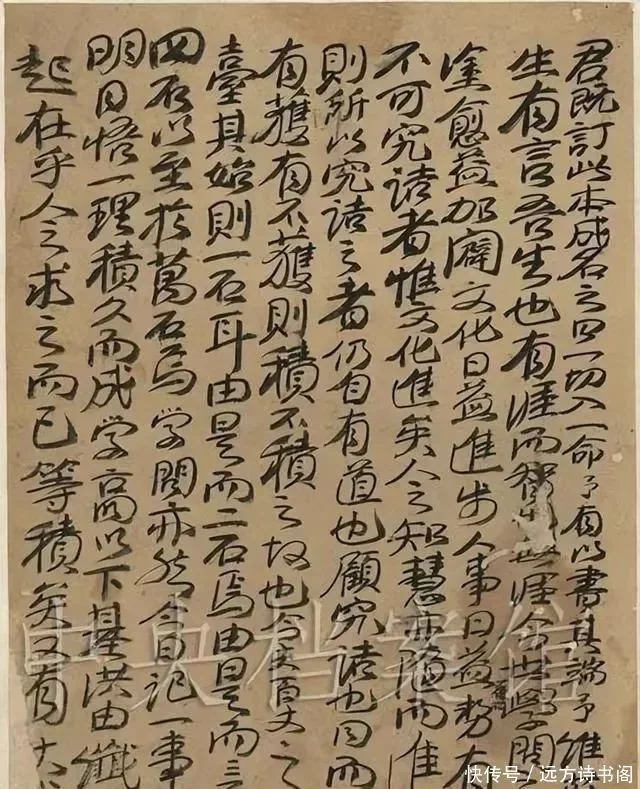 君既訂此本成名之曰一切入一命予有以書其端予維
生有言吾生也有涯而智也無涯今世學問
塗愈益加闢文化日益進步人事日益勢有
不可究詰者惟文化進矣人之知慧亦隨而進
則所以究詰之者仍自有道也顧究詰也同而
有獲有不獲則積不積之故也今夫百丈之
臺其始則一石耳由是而二石焉由是而三
四石以至於萬石焉学問亦然今日記一事
明日悟一理積久而成学高以下基洪由纖
起在乎人之求之而已等積矣又有大
中央档案馆
快传号/远方诗书阁